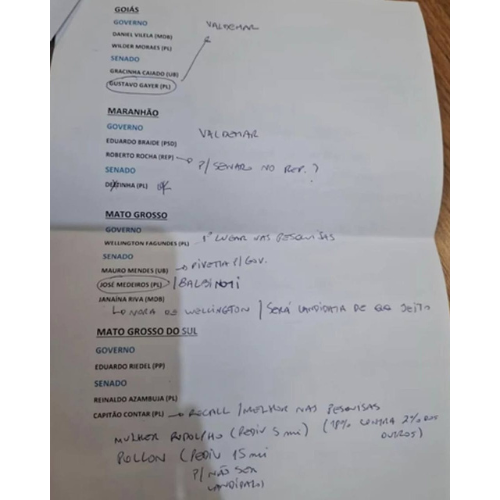 GOIÁS
GOVERNO
VALDEMAR
DANIEL VILELA (MDB)
WILDER MORAES (PL)
SENADO
GRACINHA CAIADO (UB)
GUSTAVO GAYER (PL)
MARANHÃO
GOVERNO
VALDEMAR
EDUARDO BRAIDE (PSD)
ROBERTO ROCHA (REP) P/ SENADO NO REP. ?
SENADO
DETINHA (PL) OK
MATO GROSSO
GOVERNO
WELLINGTON FAGUNDES (PL) 1º LUGAR NAS PESQUISAS
SENADO
MAURO MENDES (UB) PIVETTA P/ GOV.
JOSÉ MEDEIROS (PL) / BALBINOTI
JANAÍNA RIVA (MDB)
DE WELLINGTON / SERÁ CANDIDATA DE QQ JEITO
MATO GROSSO DO SUL
GOVERNO
EDUARDO RIEDEL (PP)
SENADO
REINALDO AZAMBUJA (PL)
CAPITÃO CONTAR (PL) RECALL / MELHOR NAS PESQUISAS
MULHER RODOLPHO (PEDIU 5 mi) (18% CONTRA 2% DOS
OUTROS)
POLLON (PEDIU 15 mi
P/ NÃO SER
CANDIDATO)